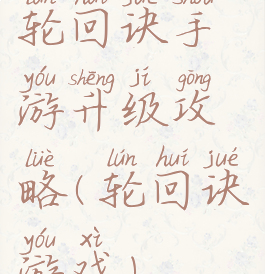 lún huí jué shǒu
轮回诀手
yóu shēng jí gōng
游升级攻
lüè lún huí jué
略(轮回诀
yóu xì
游戏)